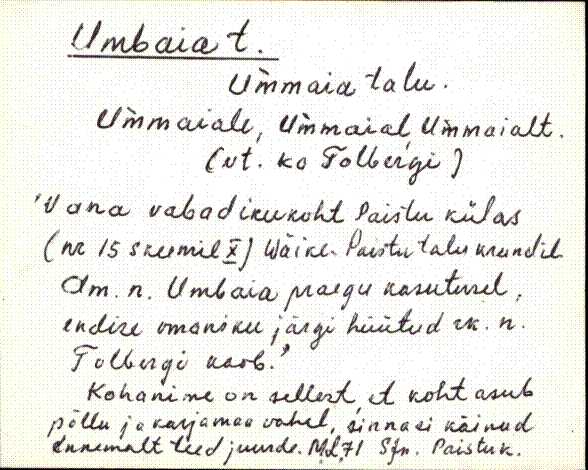 Umbaia t.
Ummaia talu.
Ummaiale, Ummaial, Ummaialt.
(vt. ka Tolbergi)
'Vana vabadikukoht Paistu külas
(nr 15 skeemil X) Wäike-Paistu talu krundil
Am. n. Umbaia praegu kasutusel,
endise omaniku järgi hüütud rk. n.
Tolbergi kaob.'
Kohanime on sellest, et koht asub
põllu ja karjamaa vahel, sinna ei käinud
ennemalt teed juurde. Paistu k.